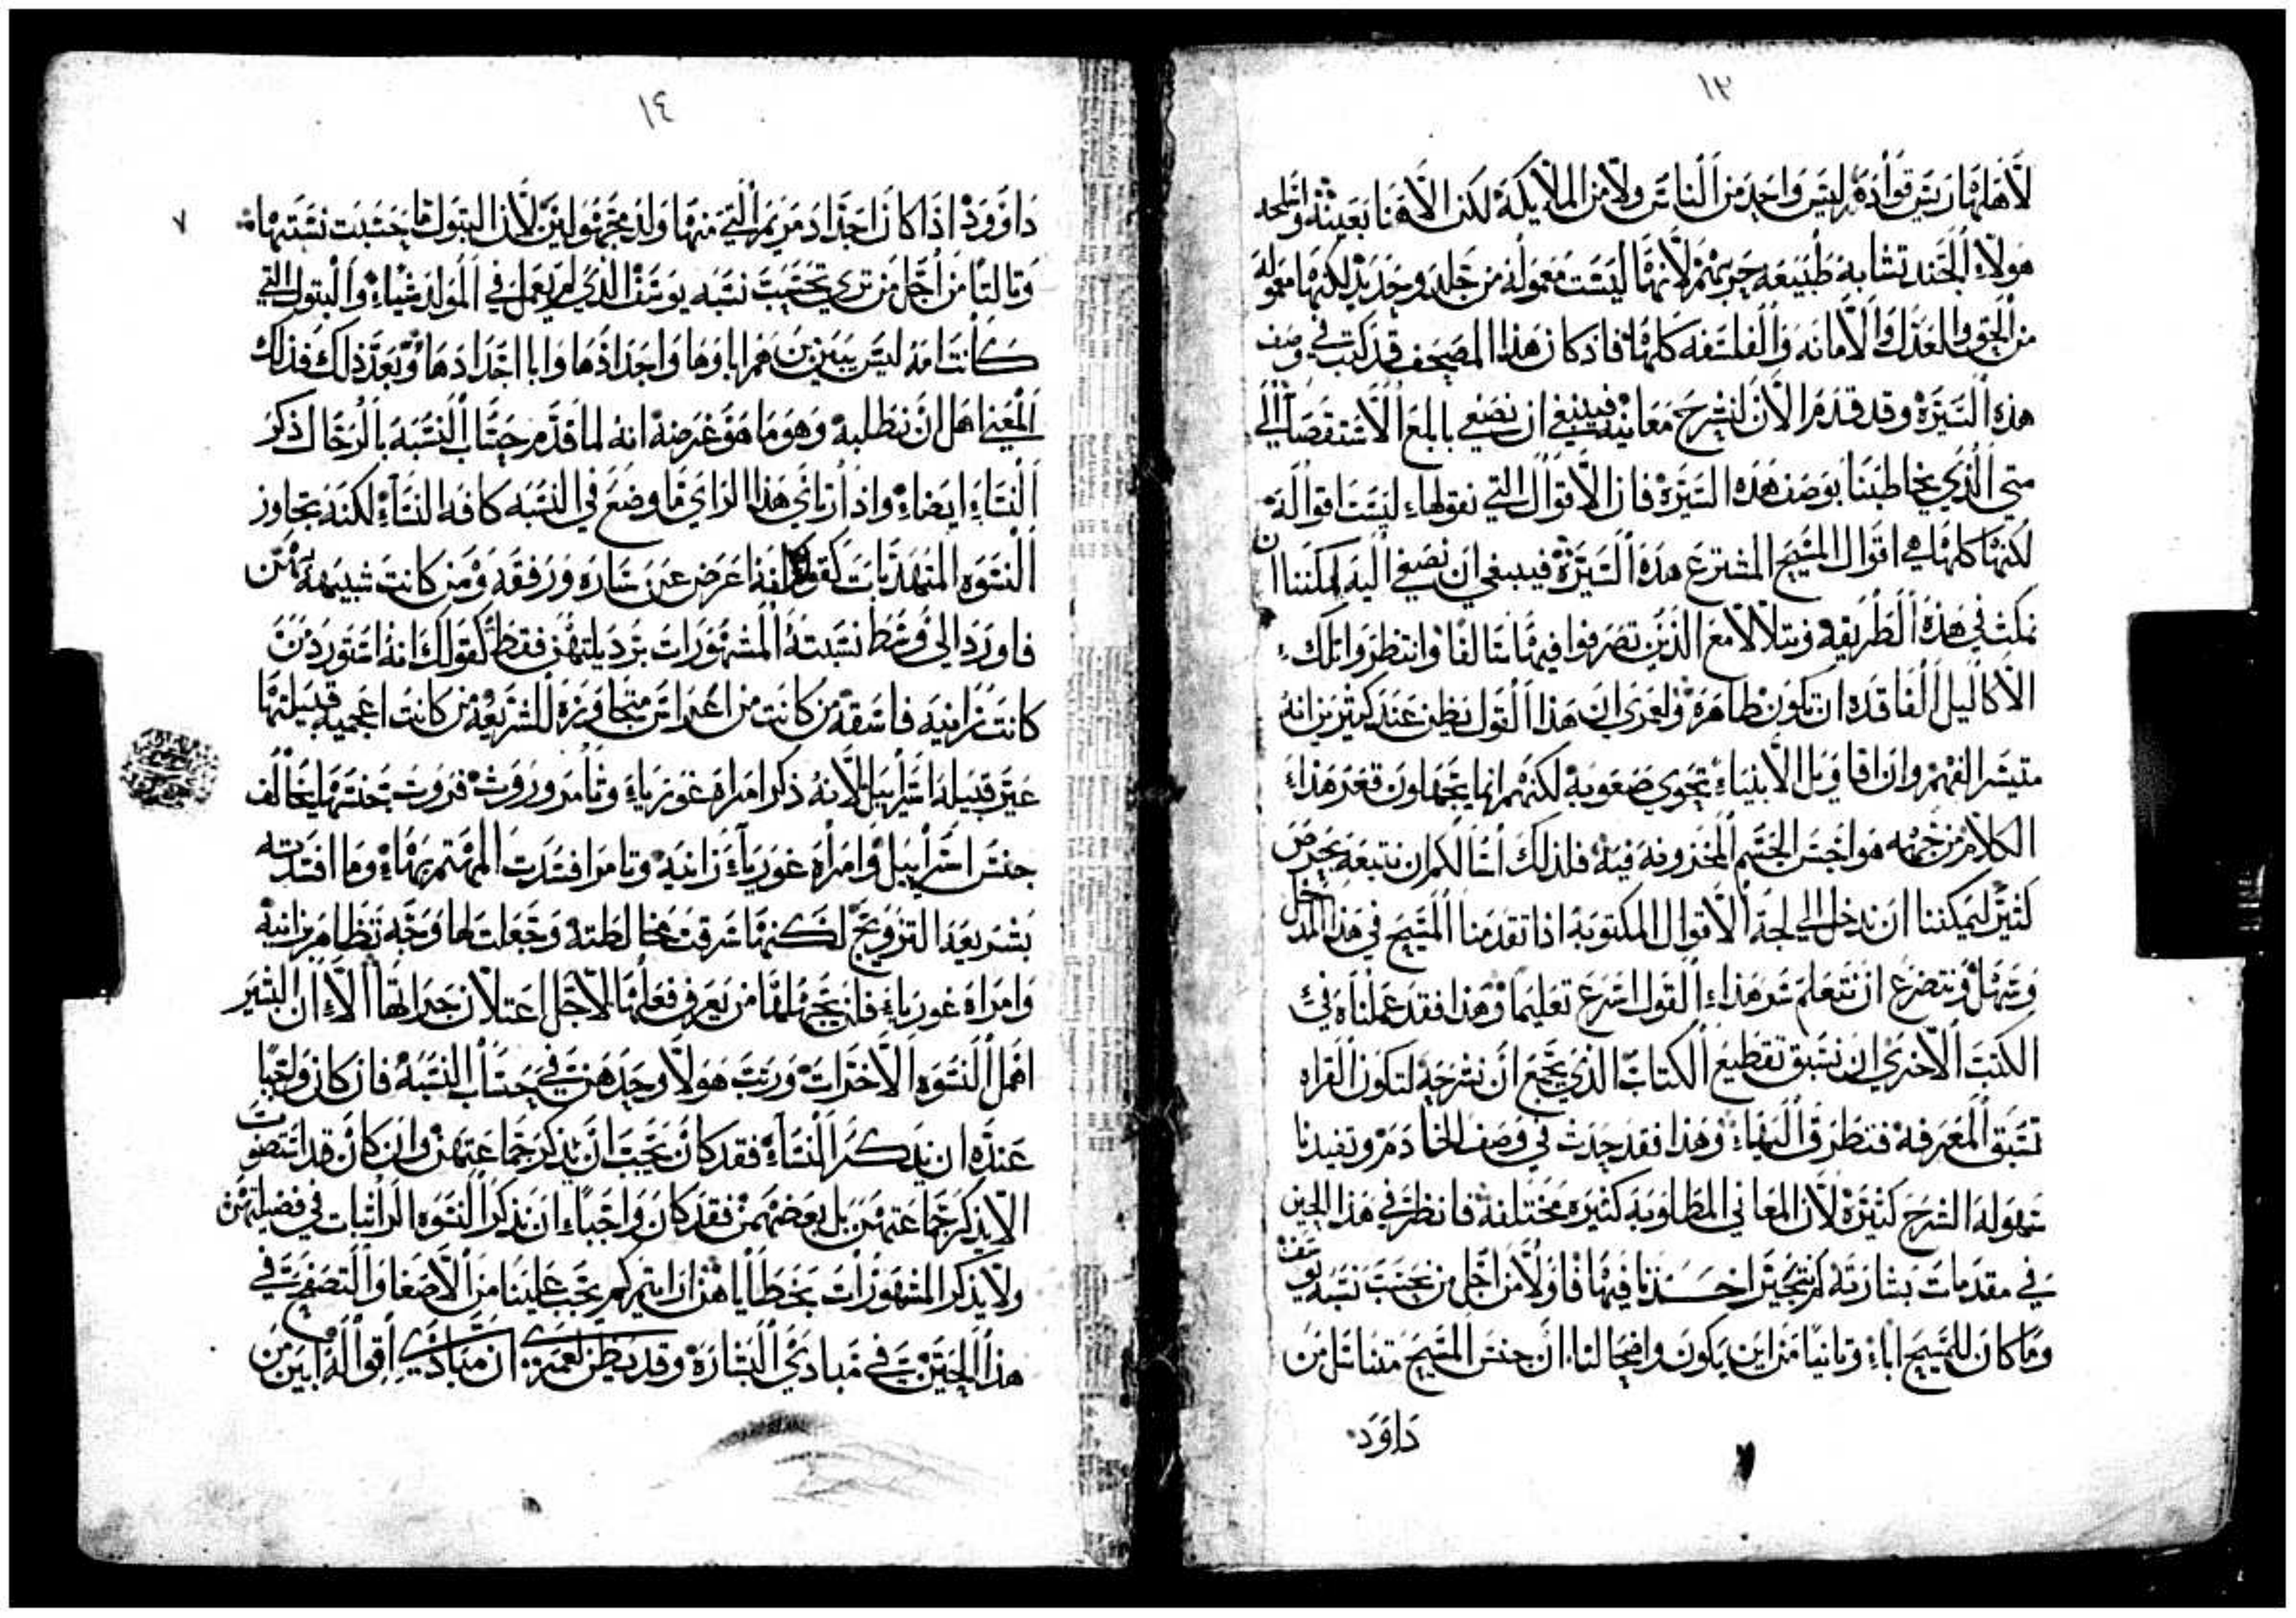 ١٣
لاهلها رييس قواده ليس واحد من الناس ولا من الملايكة لكن الاهنا بعينه واسلحه
هولاء الجند تشابه طبيعه حربهم لانها ليست معموله من جلد وحديد لكنها معموله
من الحق والعدل والامانه والفلسفه كلها فاذ كان هذا المصحف قد كتب في وصف
هذه السيرة وقد قدم الان لنشرح معانيه فينبغي ان نصغي بابلغ الاستقصاء الي
متي الذي يخاطبنا بوصف هذه السيرة فان الاقوال التي نقولها ليست اقواله
لكنها كلها هي اقوال المسيح المشترع هذه السيرة فينبغي ان نصغي اليه ليمكننا ان
نكتب في هذه الطريقه ونتلالا مع الذين تصرفوا فيها سالفا وانتظروا تلك
الاكاليل الفاقده ان تكون ظاهرة ولعمري ان هذا القول يظن عند كثيرين انه
متيسر الفهم وان اقاويل الانبياء تحوي صعوبة لكنهم انما يجهلون قعر هذا
الكلام من جهته هو احسن الجسم المخزونه فيه فلذلك اسالكم ان نتبعه بحرص
كثير ليمكننا ان ندخل الي لجة الاقوال المكتوبة اذا تقدمنا المسيح في هذا المدخل
وتسهل ونتضرع ان نتعلم سر هذا القول اسرع تعليما وهذا فقد عملناه في
الكتب الاخري ان نسبق تقطيع الكتاب الذي نجمع ان نشرحه لتكون القراه
تسبق المعرفة فتطرق اليها وهذا فقد حدث في وصف الخادم وتفيدنا
سهولة الشرح كثيرة لان المعاني المطلوبة كثيره مختلفة فانظر في هذا الحين
في مقدمات بشارته كم نتيجتين اخذنا فيها فاولا من اجل من تحسب نسبة يوسف
وما كان للمسيح اباء وثانيا من اين يكون واضحا لنا ان جنس المسيح متناسل من
داوود
١٤
٧
داوود اذا كان اجداد مريم التي منها ولد مجهولين لان البتول ما حسبت نسبتها
وثالثا من اجل من تري تحتسبت نسبه يوسف الذي لم يعمل في المولد شياء والبتول التي
كانت امه ليس يبين من هم اباوها واجدادها وابا اجدادها وبعد ذالك فذلك
المعنا اهل ان نطلبه وهو ما هو غرضه انه لما قدم حساب النسبه بالرجال ذكر
النساء ايضا واذ ارتاي هذا الراي ما وضع في النسبه كافه النساء لكنه تجاوز
النسوه المتهذبات كقولك انه اعرض عن ساره ورفقه ومن كانت شبيهه بهن
فاورد الي وسط نسبته المشهورات برديلتهن فقط كقولك انه استورد من
كانت زانيه فاسقه من كانت من اعراس متجاوزة للشريعه من كانت اعجميه قبيلتها
غير قبيلة اسراييل لانه ذكر امراة غوريا وثامر وروث فروث جنسها يخالف
جنس اسراييل وامراه غوريا زانيه وثامرا فسدت المهتم بها وما افسدته
بشريعه التزويج لكنها سرقت مخالطته وجعلت لها وجه تظاهر زانيه
وامراه غوريا فلن يجهلها من يعرف فعلها لاجل اعتلان جسارتها الا ان البشير
اهمل النسوه الاخرات ورتب هولا وحدهن في حساب النسبه فان كان واجبا
عنده ان يذكر النساء فقد كان يجب ان يذكر جماعتهن وان كان قد استصوت
الا يذكر جماعتهن بل بعضهن فقد كان واجبا ان يذكر النسوه الراتبات في فضيلتهن
ولا يذكر المشهورات بخطاياهن ارايتم كم يجب علينا من الاصغا والتصفح في
هذا الحين في مبادي البشارة وقد يظن لعمري ان مبادي اقواله ابين من